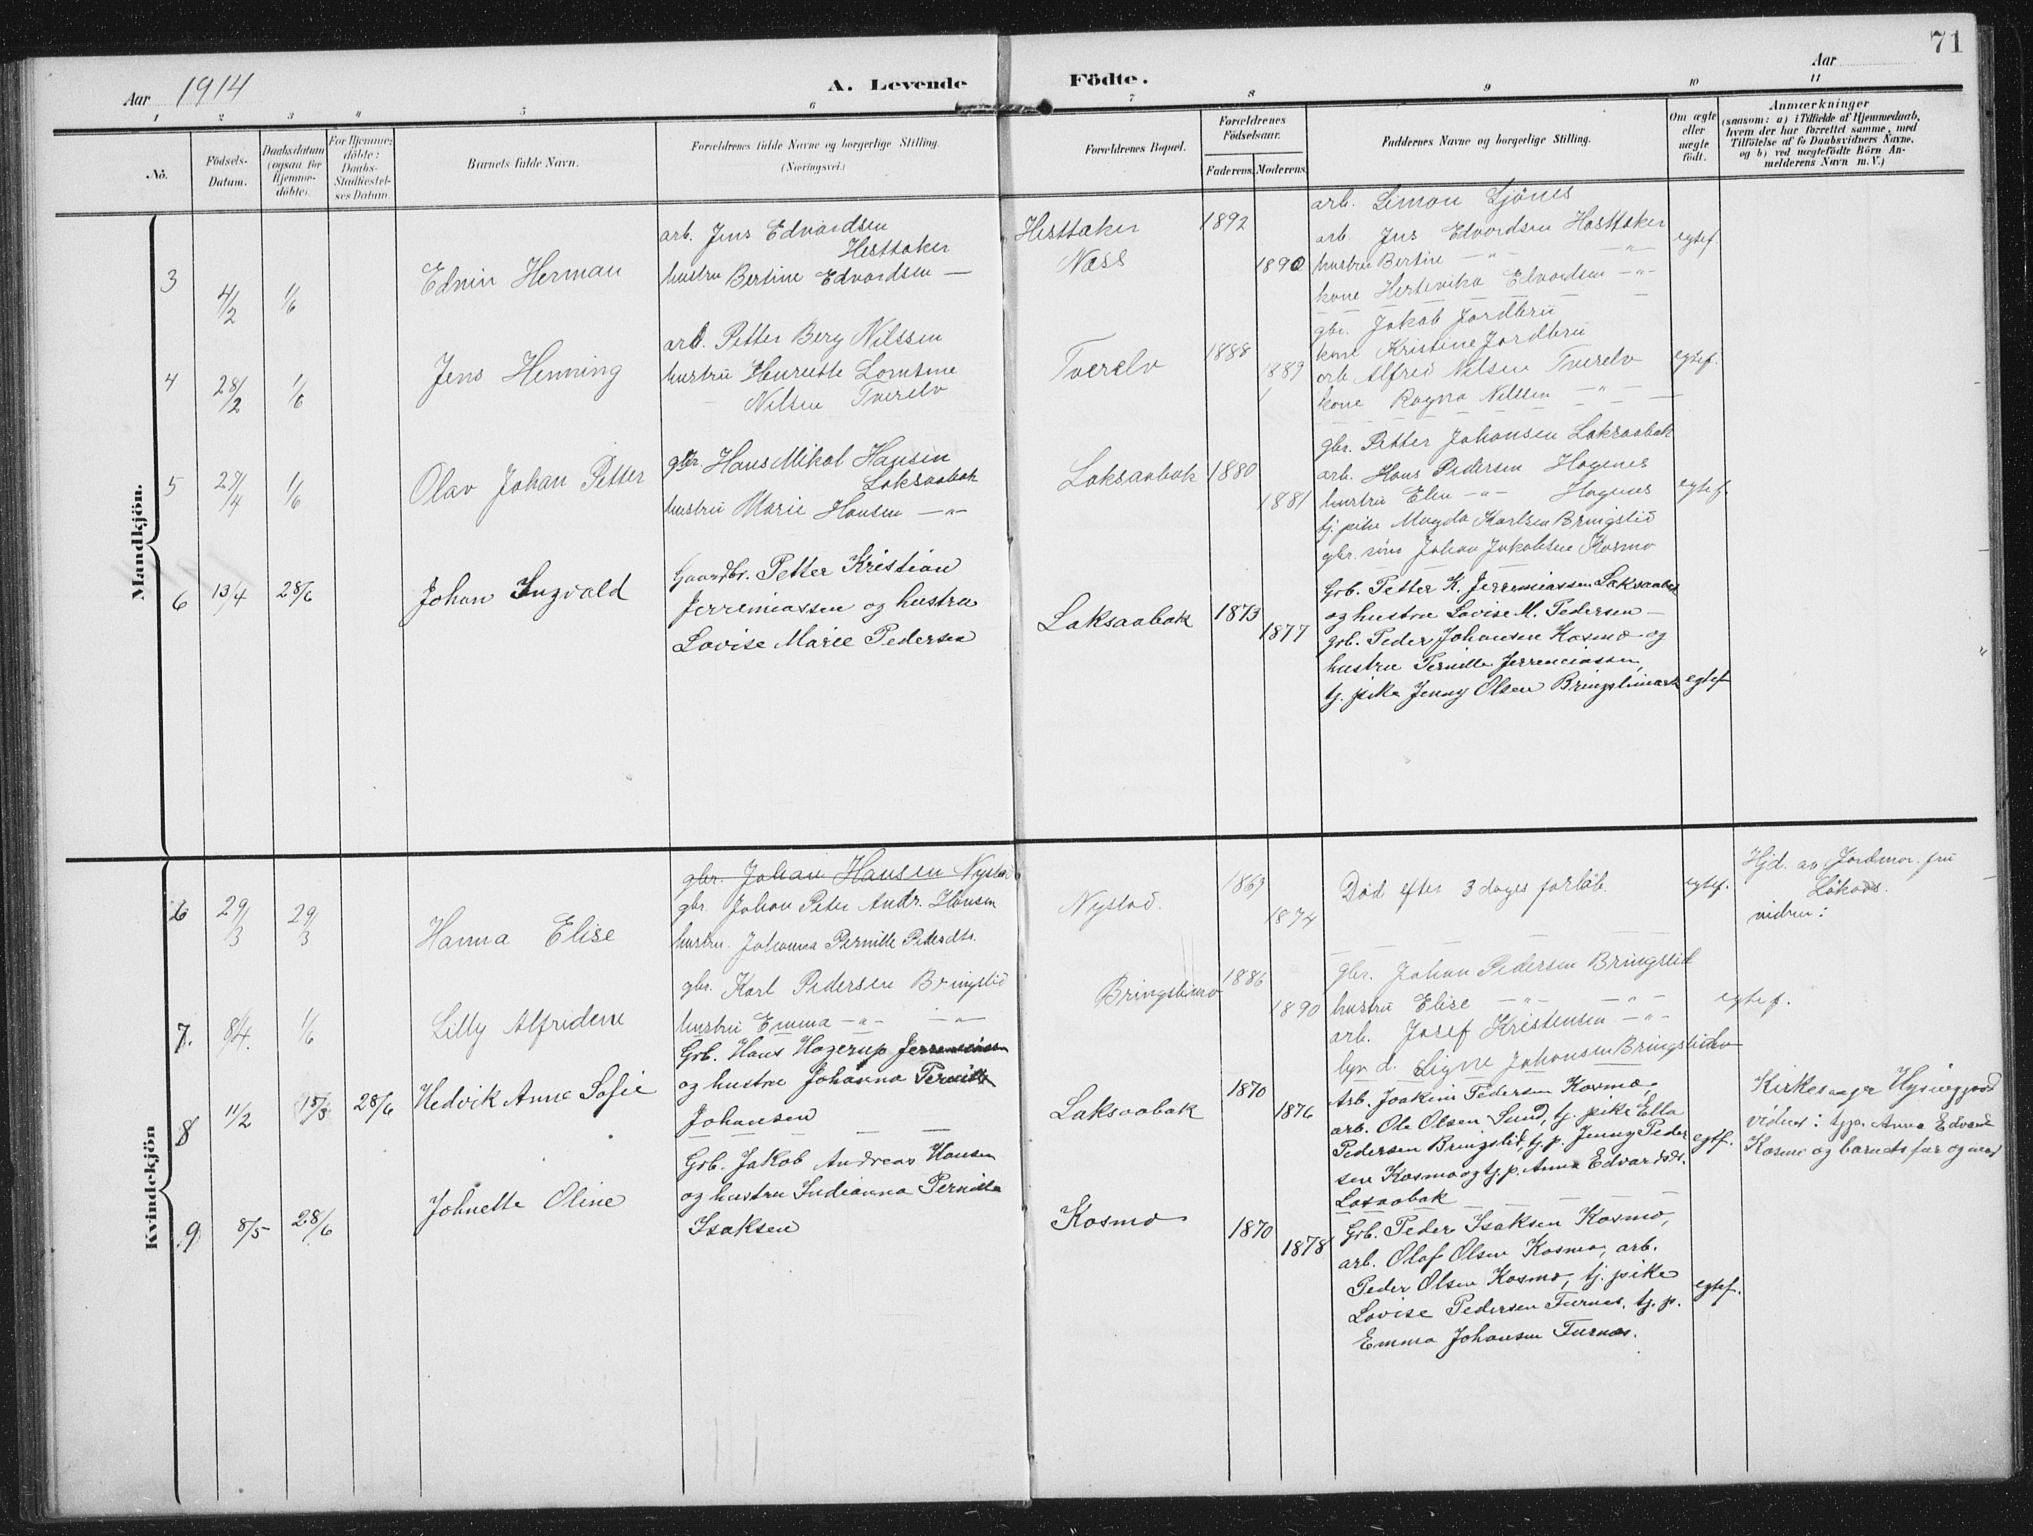 71
Aar 1914
A. Levende Födte.
Aar
1 2 3 4 5 6 7 8 9 10 11
No.
Födsels-Datum.
Daabsdatum (ogsaa for Hjemmedöbte).
For Hjemmedöbte: Daabs-Stadfæstelses Datum.
Barnets fulde Navn.
Forældrenes fulde Navne og borgerlige Stilling.
(Næringsvei.)
Forældrenes Bopæl.
Forældrenes Födselsaar.
Faderens. Moderens.
Faddernes Navne og borgerlige Stilling.
Om ægte eller uægte födt.
Anmærkninger
(saasom: a) i Tilfælde af Hjemmedaab, hvem der har forrettet samme, med Tilföielse af to Daabsvidners Navne, og b) ved uægtefödte Börn Anmelderens Navn m. V.)
Mandkjön.
3 4/2 1/6 Edvin Herman
arb. Jens Edvardsen
Hesttaker
hustru Bertine Edvardsen —
Hesttaker
Næss
1892 1890
arb. Simon
arb. Jens Edvardsen Hesttaker
hustru Bertine — " — — " —
kone Edvardsen — " —
egtef
4 28/2 1/6 Jens Henning
arb. Petter Berg Nilssen
hustru Henrette
Nilsen Tverelv
Tverelv
1888 1889
gbr. Jakob Jordbru
kone Kristine Jordbru
arb Alfred Nilsen Tverelv
kone Ragna Nilssen — " —
egtef.
5 29/4 1/6 Olav Johan Petter
gbr. Hans Mikal Hansen
Laksaabak
hustru Marie Hansen — " —
Laksaabak
1880 1881
gbr. Petter Johansen Laksaabak
arb. Hans Pedersen Hagenes
hustru Elen — " — Hagenes
tj. pike Magda Karlsen Bringslid
gbr. søn Johan Jakobsen Kosmo
egtef.
6 13/4 28/6 Johan Ingvald
Gaardbr. Petter Kristian
Jerremiassen og hustru
Lovise Marie Pedersen
Laksaabak
1873 1877
Grb. Petter K. Jerremiassen Laksaabak
og hustru Lovise M. Pedersen —
grb. Peder Johansen Kosmo og
hustru Pernille Jerremiassen,
tj. pike Jenny Olsen Bringslimark
egtef
Kvindekjön
6 29/3 29/3 Hanna Elise
gbr. Johan Hansen Nystad
gbr. Johan Peter Andr. Hansen
hustru. Johanna Pernille Pedersdtr.
Nystad.
1869 1874
Død efter 3 dages forløb.
egtef.
Hjd. av Jordmor. fru
vidner:
7. 8/4. 1/6 Lilly Alfridene
gbr. Karl Pedersen Bringslid
hustru Emma — " — — " —
Bringslimo
1886 1890
gbr. Johan Pedersen Bringslid
hustru Elise — " — — " —
arb. Josef Kristensen — " —
d. Signe Johansen
egtef.
8 11/2 15/3 28/6 Hedvik Anne Sofie
Grb. Hans Hagerup Jerremiassen
og hustru Johanna Pernille
Johansen
Laksaabak
1870 1876
Arb. Joakim Pedersen Kosmo,
arb. Ole Olsen Sund, tj. pike Ella
Pedersen Bringslid, tj. p. Jenny Peder
sen Kosmo og tj. p. Anna Edvardsdr.
Laksaabak
egtf.
Kirkesanger
vidner: tj.p. Anna
Kosmo og barnets far og mor
9 8/5 28/6 Johnette Oline
Grb. Jakob Andreas Hansen
og hustru Indianna Pernille
Isaksen
Kosmo
1870 1878
Grb. Peder Isaksen Kosmo,
arb. Olaf Olsen Kosmo, arb.
Peder Olsen Kosmo, tj. pike
Lovise Pedersen Furnes, tj. p.
Emma Johansen Furnes.
egtef.